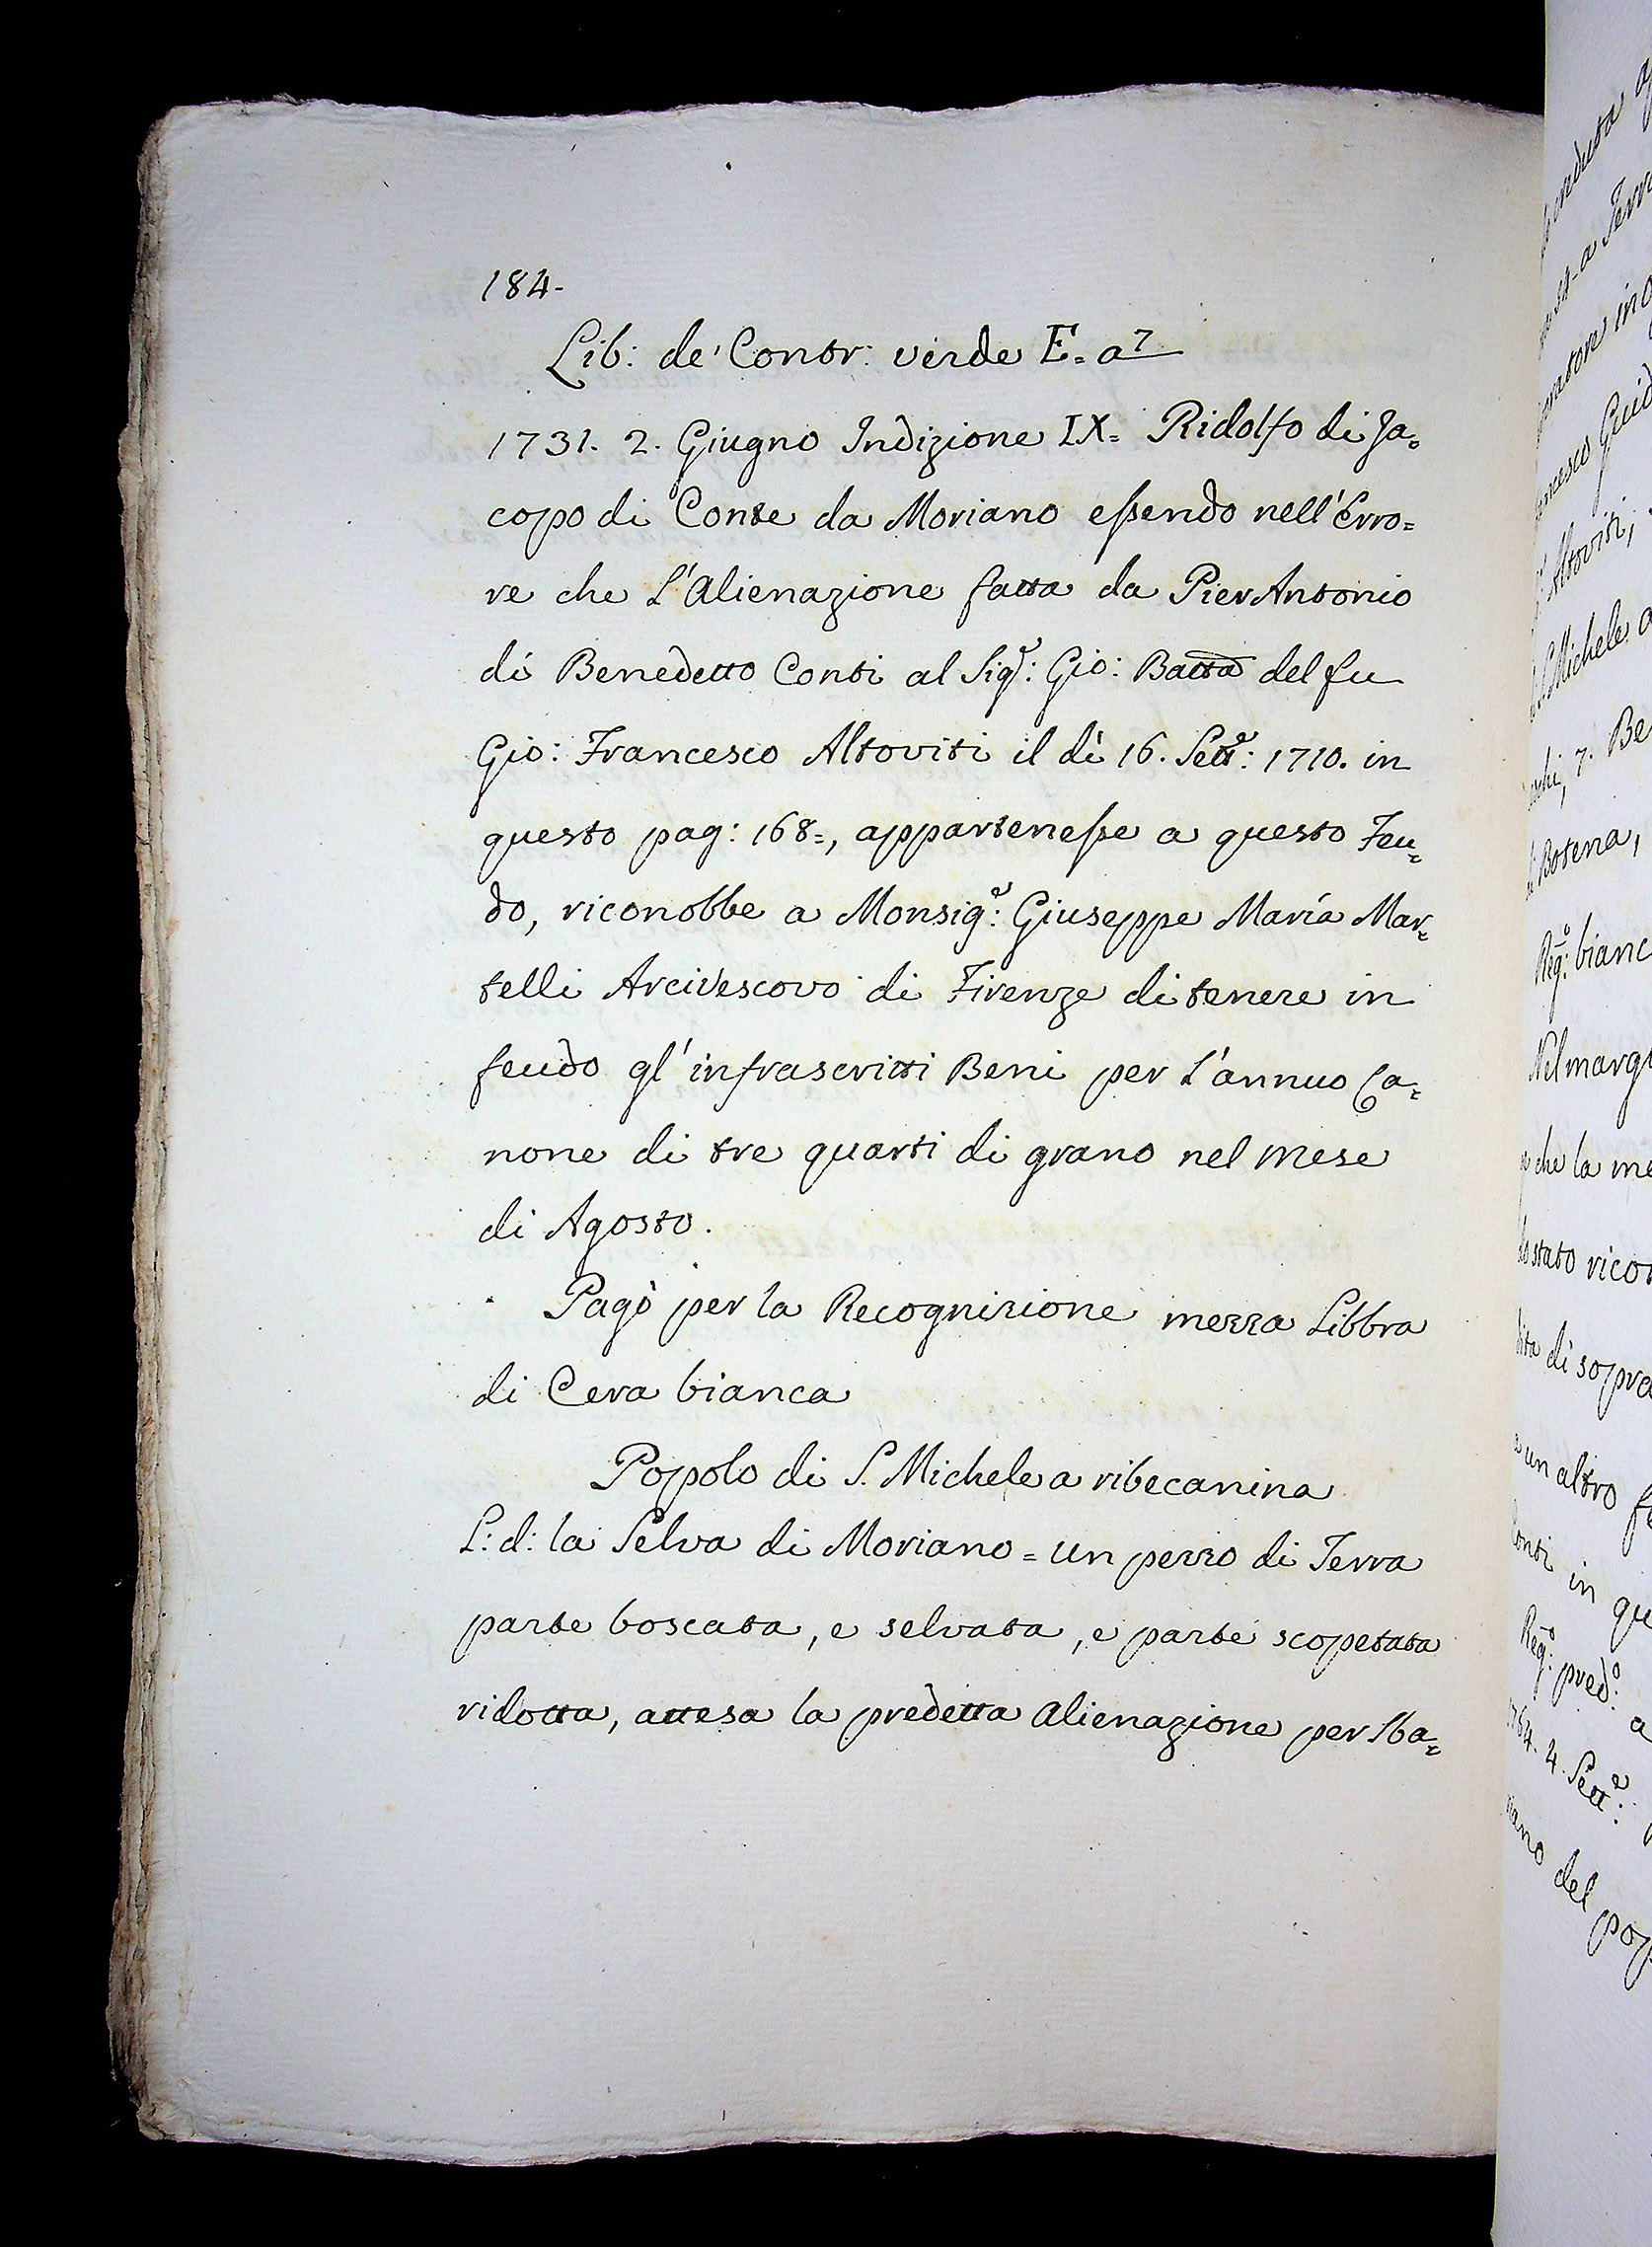 184-
Lib: de' Contr: verde E= a 7
1731. 2. Giugno Indizione IX= Ridolfo di Ja=
copo di Conte da Moriano essendo nell'Erro=
re che L'Alienazione fatta da PierAntonio
di Benedetto Conti al Sig.e: Gio: Batta del fu
Gio: Francesco Altoviti il dì 16. Sett.e: 1710. in
questo pag: 168=, appartenesse a questo Feu=
do, riconobbe a Monsig.e: Giuseppe Maria Mar=
telli Arcivescovo di Firenze di tenere in
feudo gl'infrascritti Beni per L'annuo Ca=
none di tre quarti di grano nel Mese
di Agosto.
Pagò per la Recognizione mezza Libbra
di Cera bianca
Popolo di S. Michele a ribecanina
L: d: la Selva di Moriano = un pezzo di Terra
parte boscata, e selvata, e parte scopetata
ridotta, attesa la predetta Alienazione per Sba=
a Terra
Guid
Altoviti,
S. Michele a
7. Be
Botena,
Reg.o: bianc
Nel marg
che la me
stato ricon
di sopra
un altro fe
Conti in qu
Reg.o: pred.o: a
4. Sett.e:
del pop